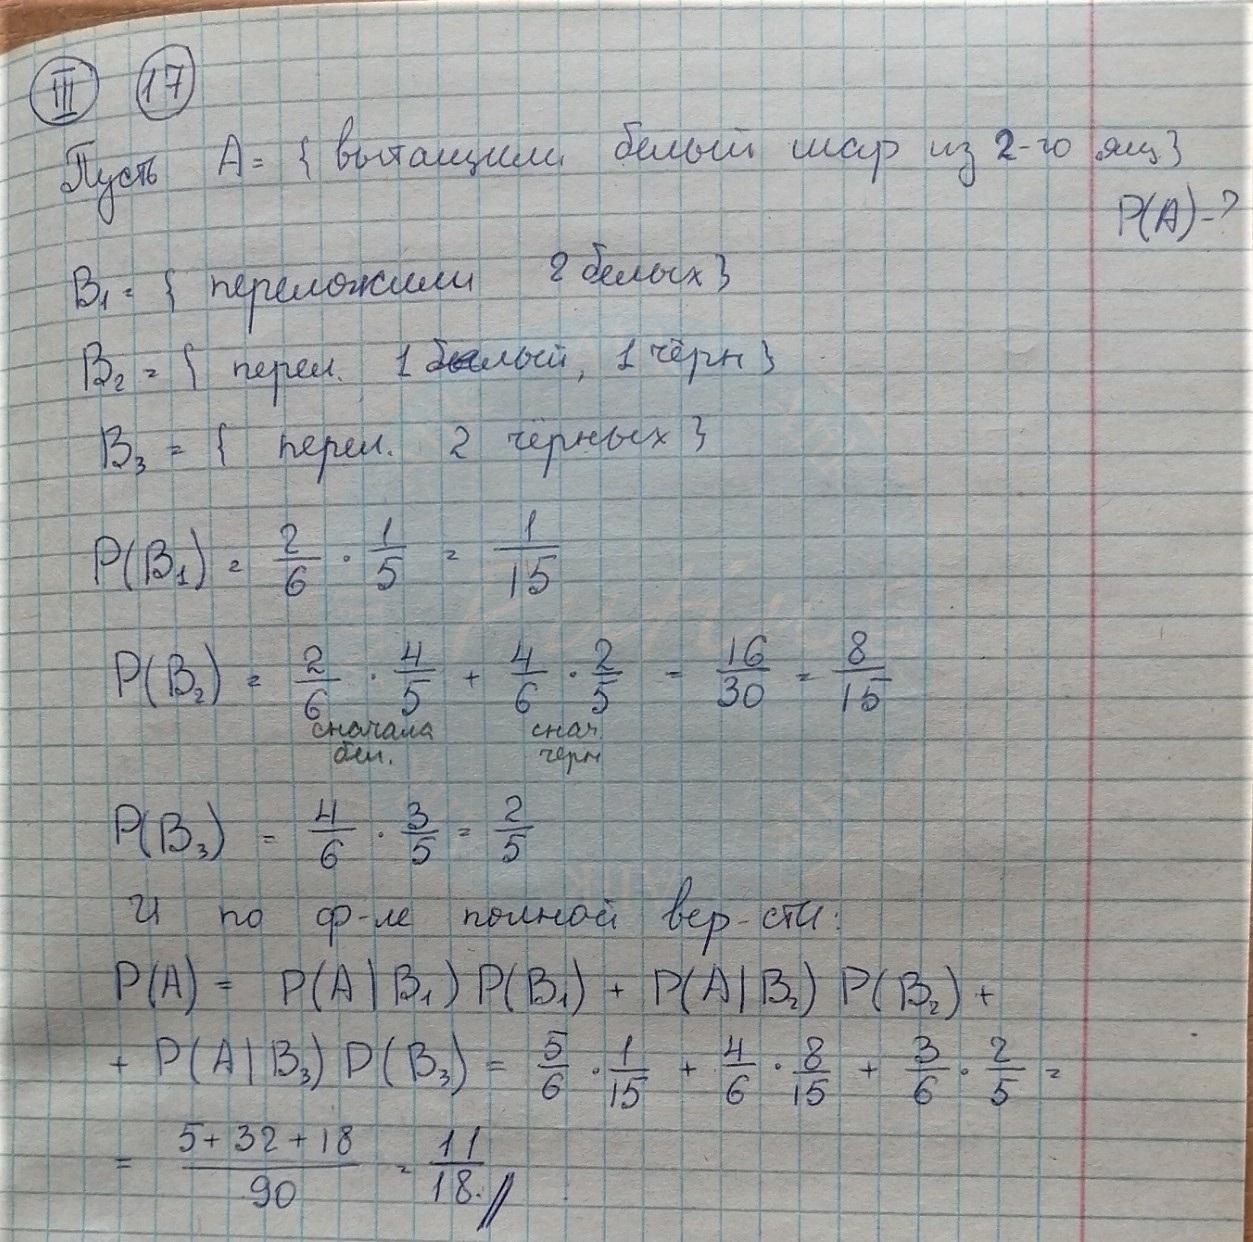 III 17
Пусть A = { вытащили белый шар из 2-го ящ}
P(A) - ?
B₁ = { переложили 2 белых }
B₂ = { перел. 1 белый, 1 чёрн }
B₃ = { перел. 2 чёрных }
P(B₁) = 2/6 · 1/5 = 1/15
P(B₂) = 2/6 · 4/5 + 4/6 · 2/5 = 16/30 = 8/15
сначала бел. снач. черн
P(B₃) = 4/6 · 3/5 = 2/5
И по ф-ле полной вер-сти:
P(A) = P(A|B₁) P(B₁) + P(A|B₂) P(B₂) +
+ P(A|B₃) P(B₃) = 5/6 · 1/15 + 4/6 · 8/15 + 3/6 · 2/5 =
= (5 + 32 + 18)/90 = 11/18. //